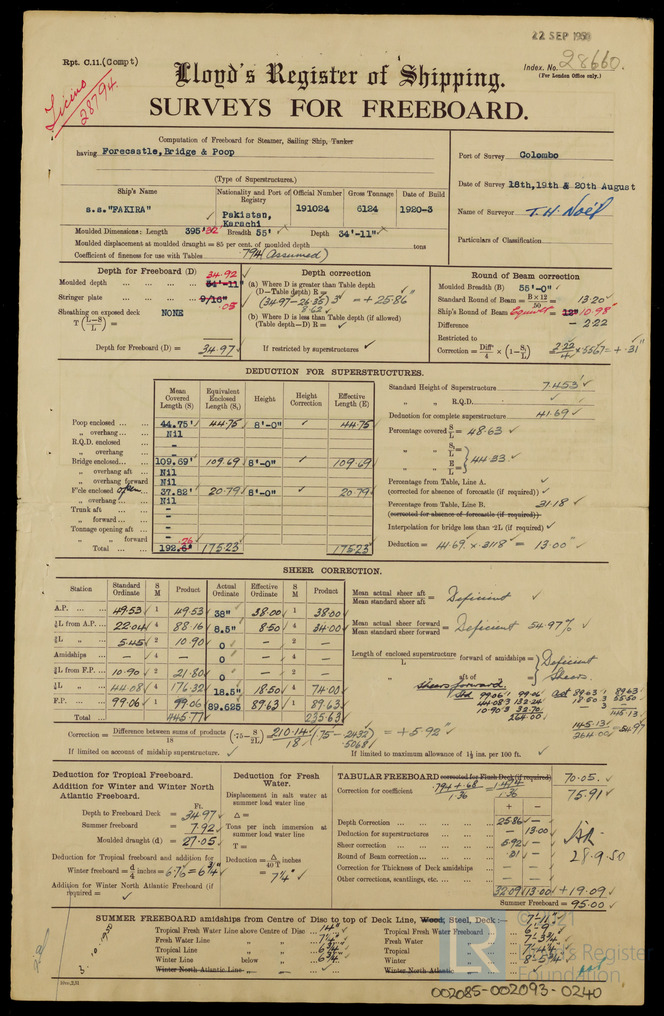 22 SEP 1950
Rpt. C.11.(Compt)
Index. No. 28660.
(For London Office only.)
Ticino
28794.
Lloyd's Register of Shipping.
SURVEYS FOR FREEBOARD.
Computation of Freeboard for Steamer, Sailing Ship, Tanker
having Forecastle, Bridge & Poop
(Type of Superstructures.)
Port of Survey Colombo
Date of Survey 18th, 19th & 20th August
Name of Surveyor T.H. Noël
Particulars of Classification
Ship's Name
Nationality and Port of Registry
Official Number
Gross Tonnage
Date of Build
s.s."FAKIRA"
Pakistan, Karachi
191024
6124
1920-3
Moulded Dimensions: Length 395' Breadth 55' Depth 34'-11"
Moulded displacement at moulded draught = 85 per cent. of moulded depth tons
Coefficient of fineness for use with Tables .794 (Assumed)
Depth for Freeboard (D)
Moulded depth 34'-11" 34.92
Stringer plate 9/16" .05
Sheathing on exposed deck NONE
T(L-S/L) =
Depth for Freeboard (D) = 34.97
Depth correction
(a) Where D is greater than Table depth
(D-Table depth) R =
(34.97-26.35) 3 = +25.86"
8.62
(b) Where D is less than Table depth (if allowed)
(Table depth-D) R =
If restricted by superstructures
Round of Beam correction
Moulded Breadth (B) 55'-0"
Standard Round of Beam = B×12/50 = 13.20
Ship's Round of Beam = 12" 10.98"
Difference - 2.22
Restricted to
Correction = Diff/4 × (1-S₁/L) 2.22/4 × .5567 = +.31"
DEDUCTION FOR SUPERSTRUCTURES.
Mean Covered Length (S)
Equivalent Enclosed Length (S₁)
Height
Height Correction
Effective Length (E)
Poop enclosed 44.75' 44.75 8'-0" 44.75
„ overhang Nil
R.Q.D. enclosed -
„ overhang -
Bridge enclosed 109.69' 109.69 8'-0" 109.69
„ overhang aft Nil
„ overhang forward Nil
F'cle enclosed open 37.82' 20.79 8'-0" 20.79
„ overhang Nil
Trunk aft -
„ forward -
Tonnage opening aft -
„ „ forward -
Total 192.26 175.23 175.23
Standard Height of Superstructure 7.453'
„ „ R.Q.D.
Deduction for complete superstructure 41.69
Percentage covered S/L = 48.63
„ „ S₁/L =
„ „ E/L = 44.33
Percentage from Table, Line A.
(corrected for absence of forecastle (if required))
Percentage from Table, Line B. 31.18
(corrected for absence of forecastle (if required))
Interpolation for bridge less than ·2L (if required)
Deduction = 41.69 × .3118 = 13.00"
SHEER CORRECTION.
Station
Standard Ordinate
S M
Product
Actual Ordinate
Effective Ordinate
S M
Product
A.P. 49.53 1 49.53 38" 38.00 1 38.00
⅙L from A.P. 22.04 4 88.16 8.5" 8.50 4 34.00
⅓L „ 5.45 2 10.90 0" - 2 -
Amidships - 4 - 0 - 4 -
⅓L from F.P. 10.90 2 21.80 0" - 2 -
⅙L „ 44.08 4 176.32 18.5" 18.50 4 74.00
F.P. 99.06 1 99.06 89.625 89.63 1 89.63
Total 445.77 235.63
Mean actual sheer aft / Mean standard sheer aft = Deficient
Mean actual sheer forward / Mean standard sheer forward = Deficient 54.97%
Length of enclosed superstructure / L forward of amidships =
„ „ aft of „ = Deficient Sheer.
Sheer forward
Std 99.06 1 99.06
44.08 3 132.24
10.90 3 32.70
264.00
Act 89.63 1 89.63
18.50 3 55.50
3 -
145.13
145.13/264.00 = 54.97
Correction = Difference between sums of products/18 (·75 - S/2L) = 210.14/18 (.75 - .2432) = +5.92"
.5068
If limited on account of midship superstructure.
If limited to maximum allowance of 1½ ins. per 100 ft.
Deduction for Tropical Freeboard.
Addition for Winter and Winter North Atlantic Freeboard.
Ft.
Depth to Freeboard Deck = 34.97
Summer freeboard = 7.92
Moulded draught (d) = 27.05
Deduction for Tropical freeboard and addition for
Winter freeboard = d/4 inches = 6.76 = 6¾"
Addition for Winter North Atlantic Freeboard (if required) =
Deduction for Fresh Water.
Displacement in salt water at summer load water line
Δ =
Tons per inch immersion at summer load water line
T =
Deduction = Δ/40T inches
= 7¼"
TABULAR FREEBOARD corrected for Flush Deck (if required) 70.05.
Correction for coefficient .794 + .68/1.36 = 1.474/1.36 75.91
+ -
Depth Correction 25.86 -
Deduction for superstructures - 13.00
Sheer correction 5.92 -
Round of Beam correction .31 -
Correction for Thickness of Deck amidships - -
Other corrections, scantlings, etc. - -
32.09 13.00 +19.09
Summer Freeboard = 95.00
28.9.50
SUMMER FREEBOARD amidships from Centre of Disc to top of Deck Line, Wood, Steel, Deck :- 7'-11"
Tropical Fresh Water Line above Centre of Disc 14"
Fresh Water Line „ „ 7¼"
Tropical Line „ „ 6¾"
Winter Line below „ „ 6¾"
Winter North Atlantic Line „ „
Tropical Fresh Water Freeboard 6'-9"
Fresh Water „ 7'-3¾"
Tropical „ 7'-4¼"
Winter „ 8'-5¾"
Winter North Atlantic „
3.10.1950
LR
Lloyd's Register
Foundation
002085-002093-0240